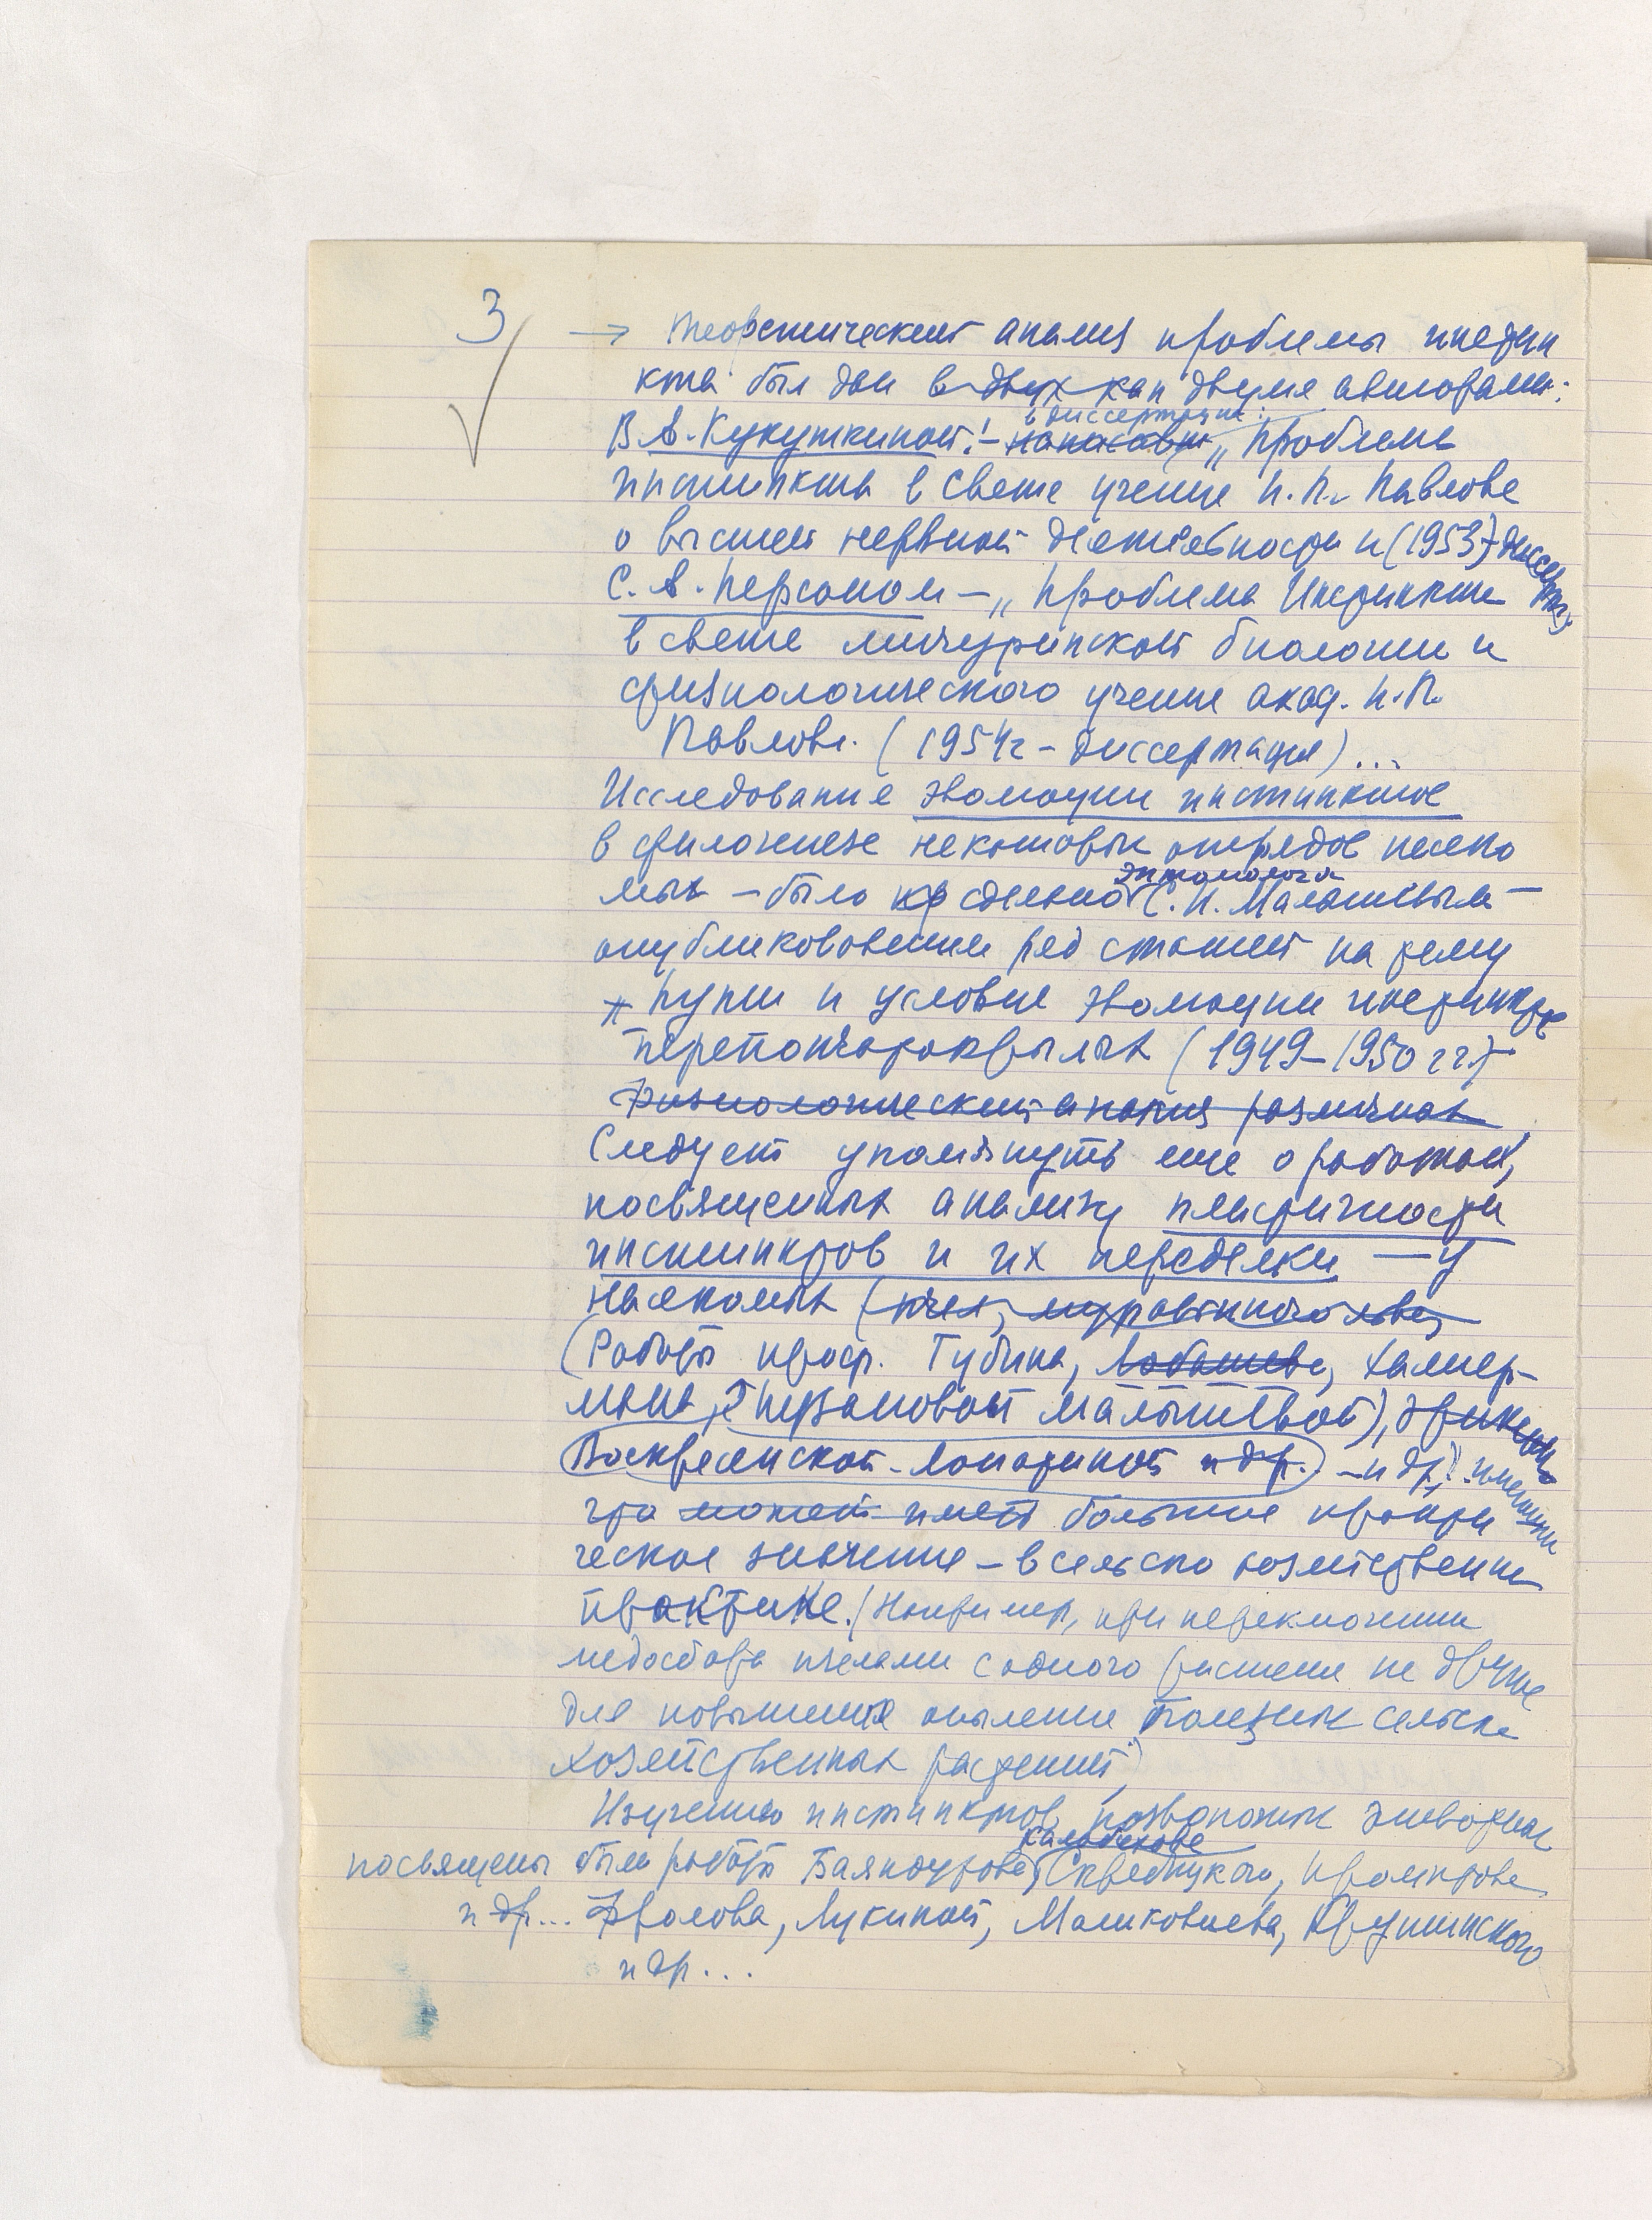 3
→ Теоретический анализ проблемы инстин
кта был дан в двух кан двумя авторами:
в диссертации:
В.А. Кукушкиной! – „Проблема
инстинкта в свете учения И.П. Павлова
о высшей нервной деятельности и (1953) – диссертац
С.А. Персоном – „Проблема Инстинкта
в свете мичуринской биологии и
физиологического учения акад. И.П.
Павлова. (1954г – диссертация)...
Исследование эволюции инстинктов
в филогенезе некоторых отрядов насеко
энтомолога
мых – было кр сделано С.И. Малышевым –
опубликовавшим ряд статей на тему
Пути и условия эволюции инстинкта
перепончатокрылых (1949–1950 гг.)
Физиологический анализ различных
Следует упомянуть еще о работах,
посвященных анализу пластичности
инстинктов и их переделки — у
насекомых (пчел, муравьиного льва,
(Работы проф. Губина, Лобашева, Халиф-
мана, Малышевой),
Воскресенской-Лопатиной и др. – и др. имеющи
что может имеет большие практи
ческое значение – в сельско хозяйственн
практике. (Например, при переключении
медосбора пчелами с одного растения на другие
для повышения опыления полезных сельско
хозяйственных растений)
Изучению инстинктов позвоночных животных
Калабухова
посвящены были работы Баяндурова, Скребицкого, Промптова
и др... Фролова, Лукиной, Машковцева, Крушинского
и др...